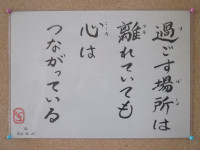 過ごす場所は
離れていても
心は
つながっている